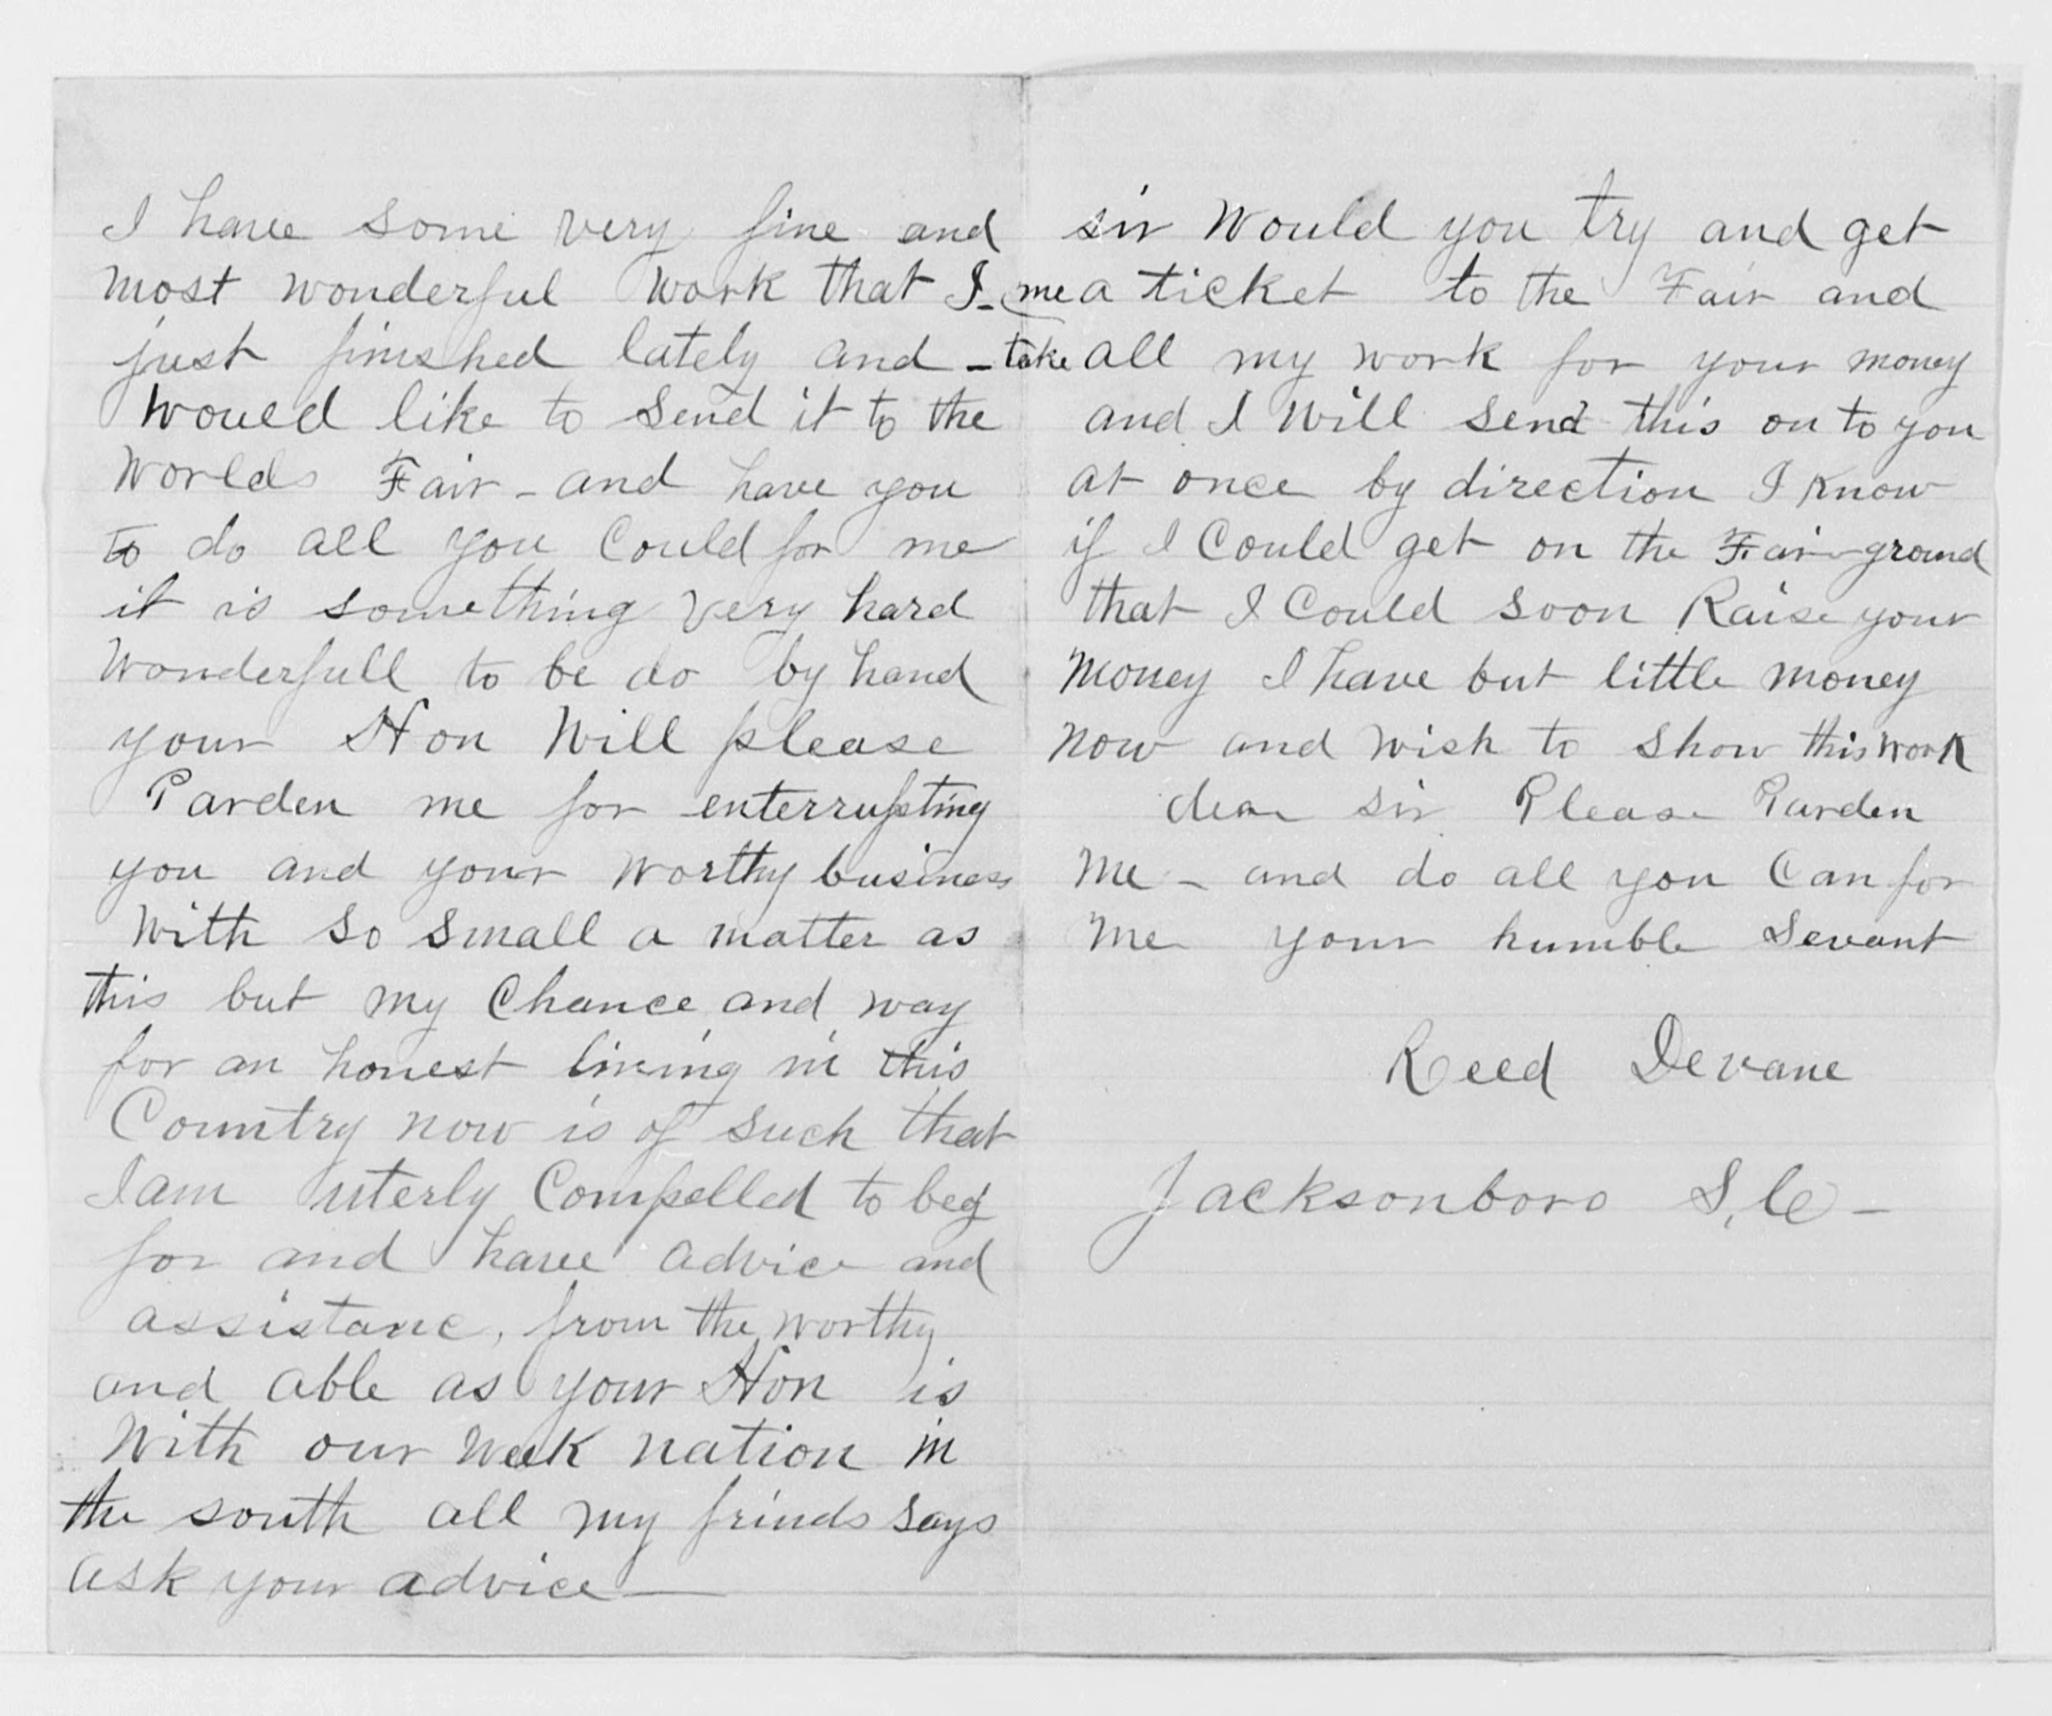 I have some very fine and
most wonderful work that I -
just finished lately and -
would like to send it to the
Worlds Fair - and have you
to do all you Could for me
it is something very hard
wonderfull to be do by hand
your Hon Will please
Parden me for enterrupting
you and your worthy business
With so small a matter as
this but my Chance and way
for an honest living in this
Country now is of such that
I am uterly Compelled to beg
for and have advice and
assistane, from the worthy
and able as your Hon is
With our Week nation in
the south all my frinds says
ask your advice —
sir Would you try and get
me a ticket to the Fair and
take all my work for your money
and I Will send this on to you
at once by direction I know
if I Could get on the Fair-ground
that I Could soon Raise your
Money I have but little money
Now and wish to show this work
dear sir Please Parden
Me - and do all you Can for
Me your humble Sevant
Reed Devane
Jacksonboro S, C -